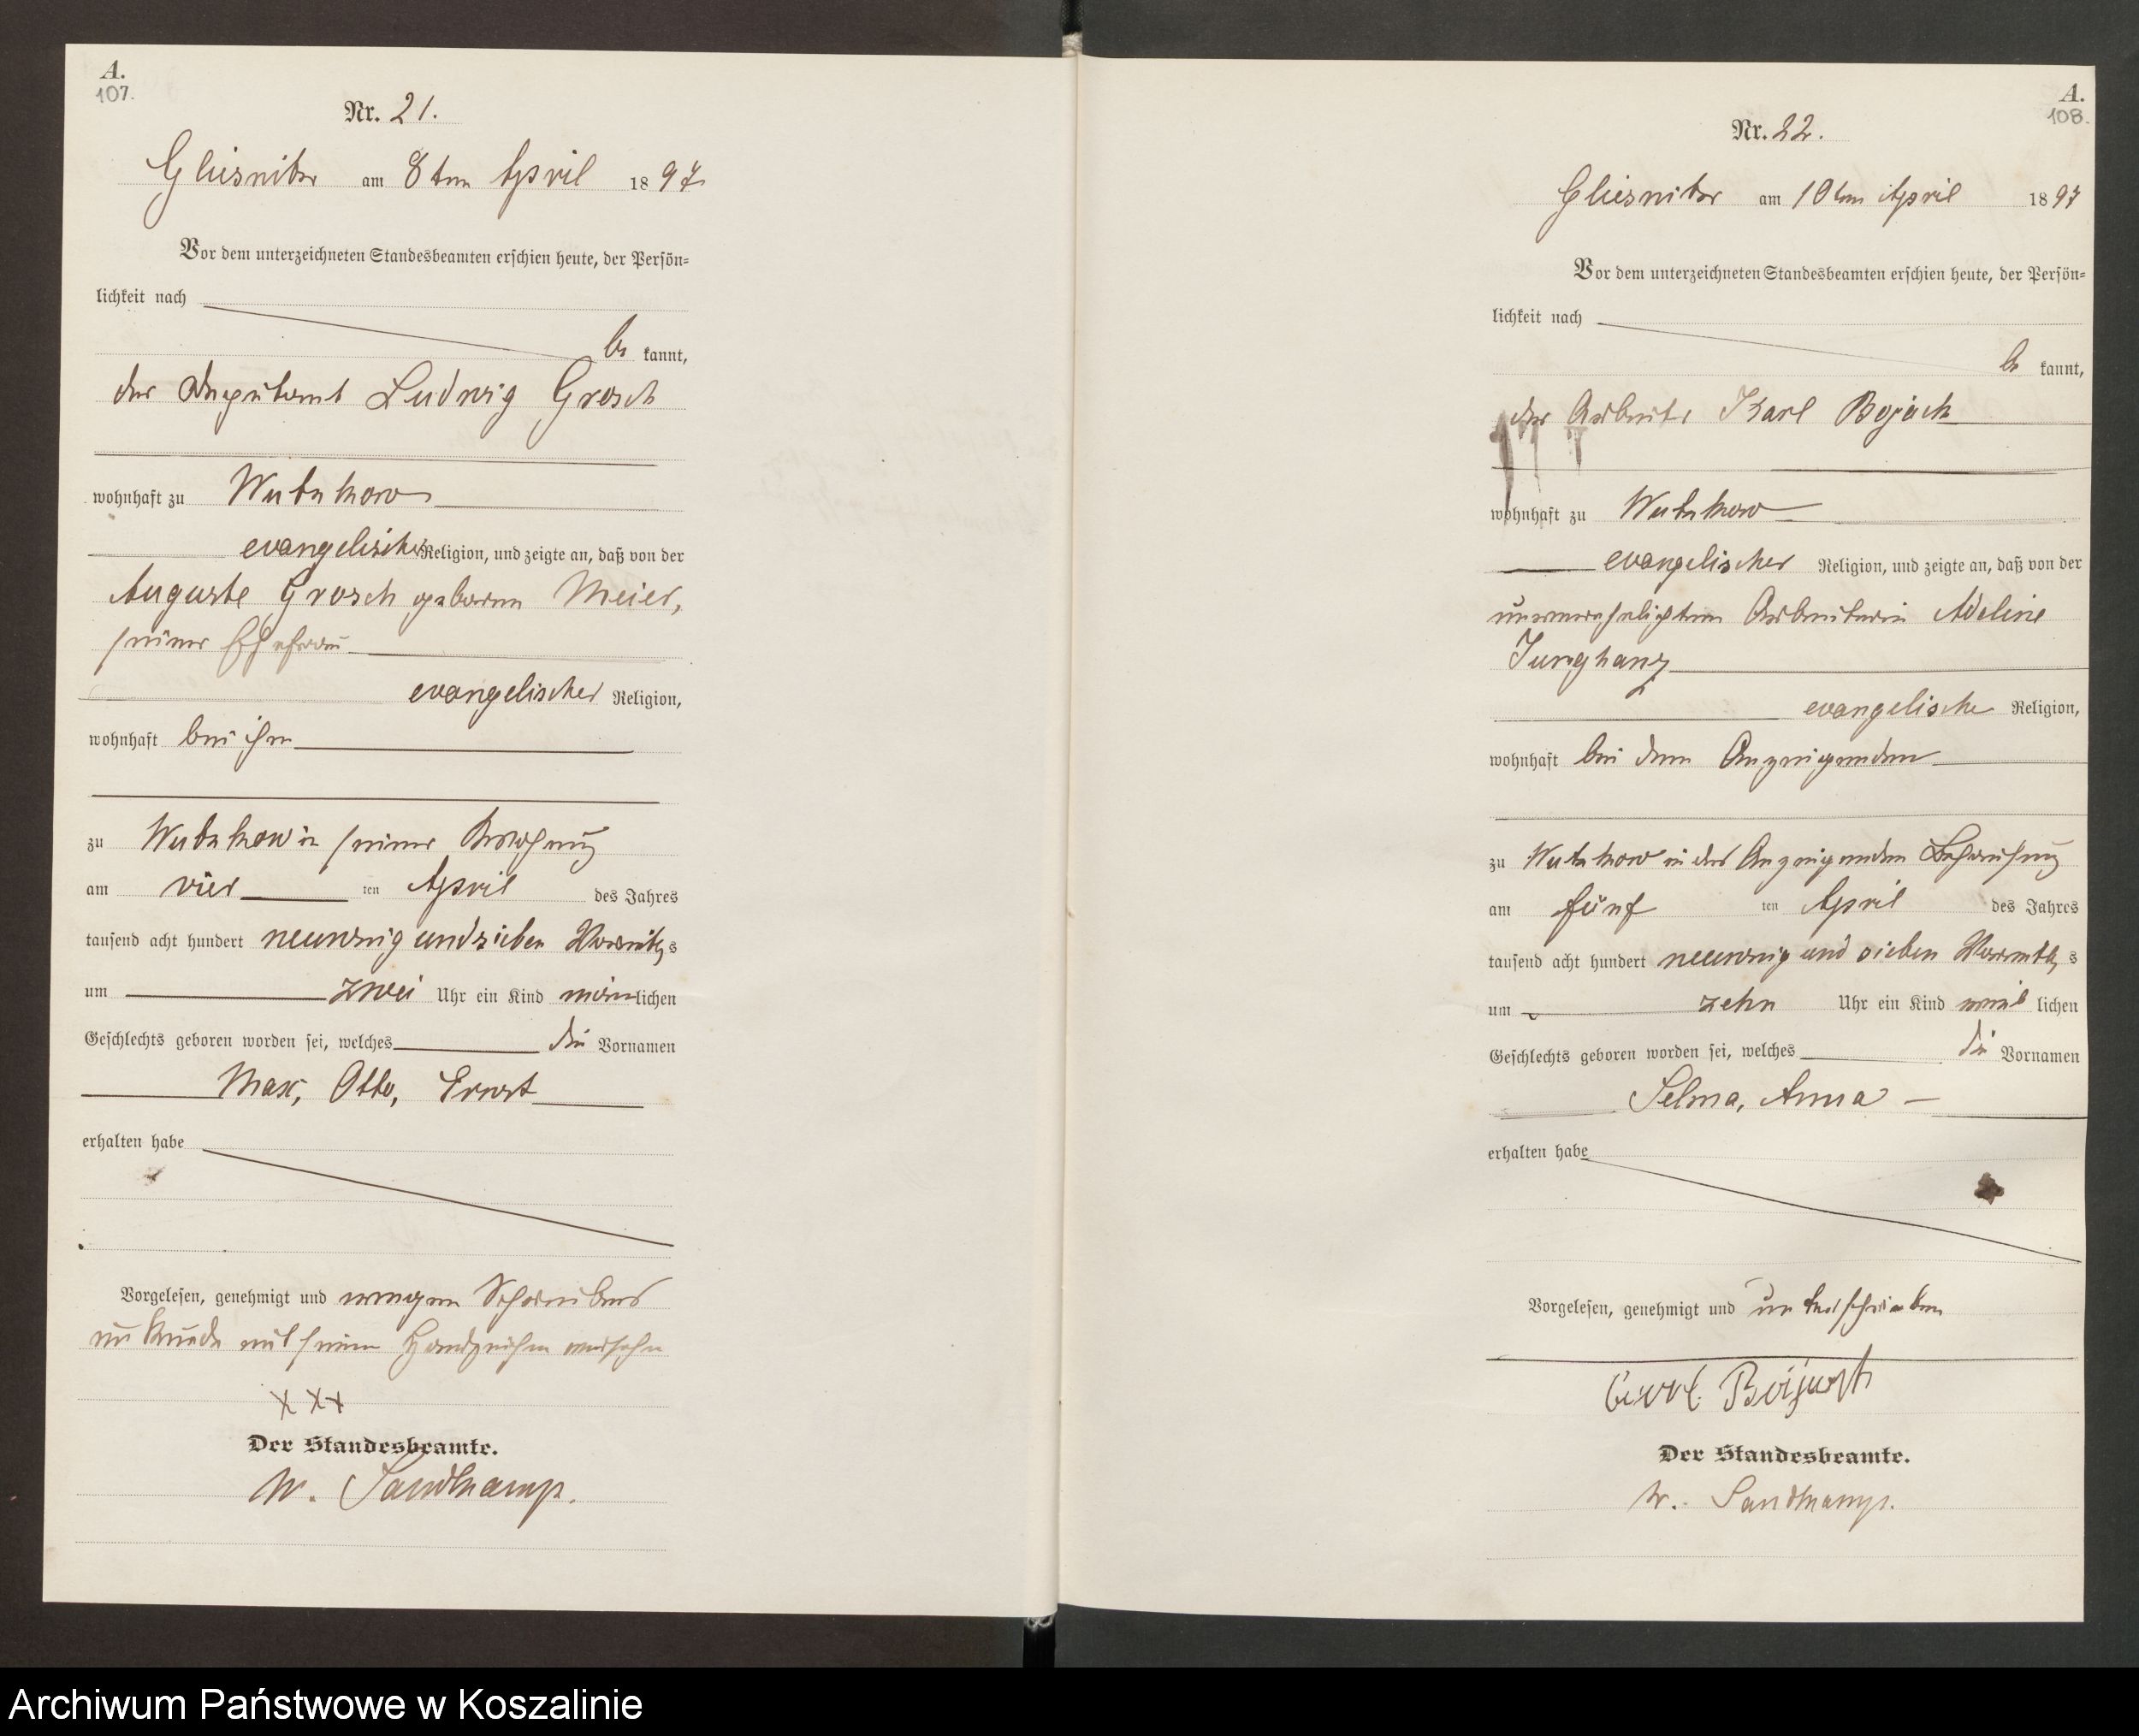 A.
107.
Nr. 21.
Gliesnitz am 8ten April 1897
Vor dem unterzeichneten Standesbeamten erschien heute, der Persön=
lichkeit nach
be kannt,
der Deputant Ludwig Grosch
wohnhaft zu Wutzkow
evangelischer Religion, und zeigte an, daß von der
Auguste Grosch geboren Meier,
seiner Ehefrau
evangelischer Religion,
wohnhaft bei ihm
zu Wutzkow in seiner Wohnung
am vier ten April des Jahres
tausend acht hundert neunzig und sieben Vormittags
um zwei Uhr ein Kind männlichen
Geschlechts geboren worden sei, welches die Vornamen
Max, Otto, Ernst
erhalten habe
Vorgelesen, genehmigt und wegen Schreibens
unkunde mit seinem Handzeichen versehen
XXX
Der Standesbeamte.
W. Sandkamp.
A.
108.
Nr. 22.
Gliesnitz am 10ten April 1897
Vor dem unterzeichneten Standesbeamten erschien heute, der Persön=
lichkeit nach
be kannt,
der Arbeiter Karl Bojack
wohnhaft zu Wutzkow
evangelischer Religion, und zeigte an, daß von der
unverehelichten Arbeiterin Adeline
Junghanz
evangelische Religion,
wohnhaft bei dem Anzeigenden
zu Wutzkow in des Anzeigenden Behausung
am fünf ten April des Jahres
tausend acht hundert neunzig und sieben Vormittags
um zehn Uhr ein Kind weib lichen
Geschlechts geboren worden sei, welches die Vornamen
Selma, Anna
erhalten habe
Vorgelesen, genehmigt und unterschrieben
Der Standesbeamte.
W. Sandkamp.
Archiwum Państwowe w Koszalinie